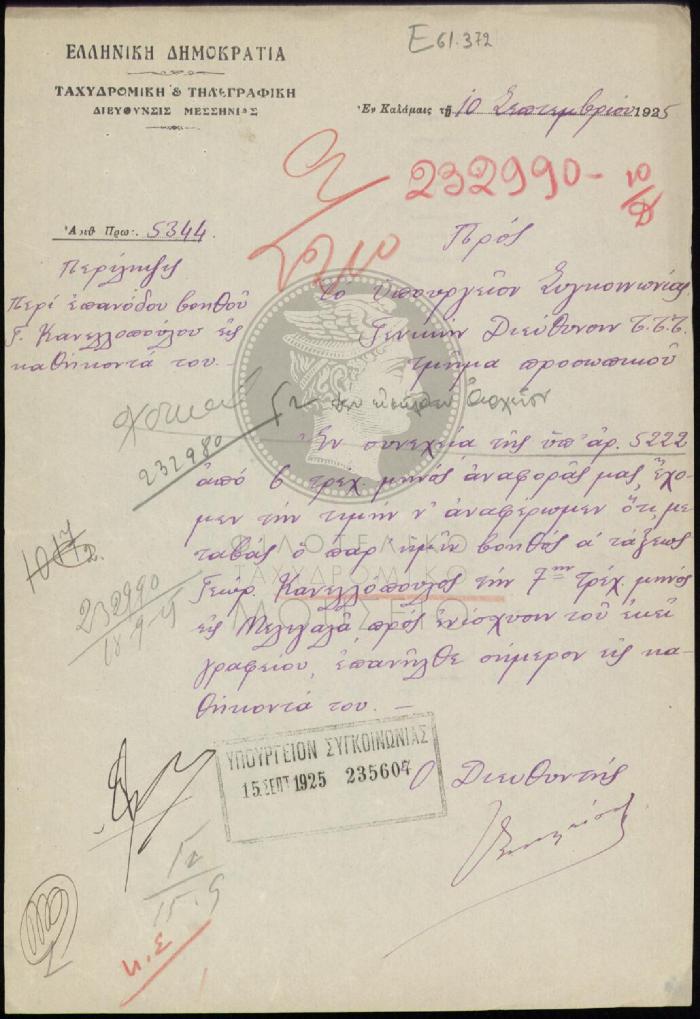 Ε 61.372
ΕΛΛΗΝΙΚΗ ΔΗΜΟΚΡΑΤΙΑ
ΤΑΧΥΔΡΟΜΙΚΗ & ΤΗΛΕΓΡΑΦΙΚΗ
ΔΙΕΥΘΥΝΣΙΣ ΜΕΣΣΗΝΙΑΣ
Ἐν Καλάμαις τῇ 10 Σεπτεμβρίου 1925
232990-
10
Ἀριθ. Πρωτ. 5344.
Πρός
Περίληψις
Περί ἐπανόδου βοηθοῦ
Γ. Κανελλοπούλου εἰς
καθήκοντά του. —
Τό Ὑπουργεῖον Συγκοινωνίας
Γενικήν Διεύθυνσιν Τ.Τ.Τ.
τμῆμα προσωπικοῦ
232980
Ἐν συνεχείᾳ τῆς ὑπ' ἀρ. 5222
ἀπό 6 τρέχ. μηνός ἀναφορᾶς μας, ἔχο-
μεν τήν τιμήν ν' ἀναφέρωμεν ὅτι, με-
ταβάς ὁ παρ' ἡμῖν βοηθός α' τάξεως
Γεώρ. Κανελλόπουλος τήν 7ην τρέχ. μηνός
εἰς Μελιγαλᾶ, πρός ἐνίσχυσιν τοῦ ἐκεῖ
γραφείου, ἐπανῆλθε σήμερον εἰς κα-
θήκοντά του. —
ΦΙΛΟΤΕΛΙΚΟ
ΤΑΧΥΔΡΟΜΙΚΟ
ΜΟΥΣΕΙΟ
232990
18-9-25
ΥΠΟΥΡΓΕΙΟΝ ΣΥΓΚΟΙΝΩΝΙΑΣ
15 ΣΕΠΤ 1925 235607
Ὁ Διευθυντής
15-9